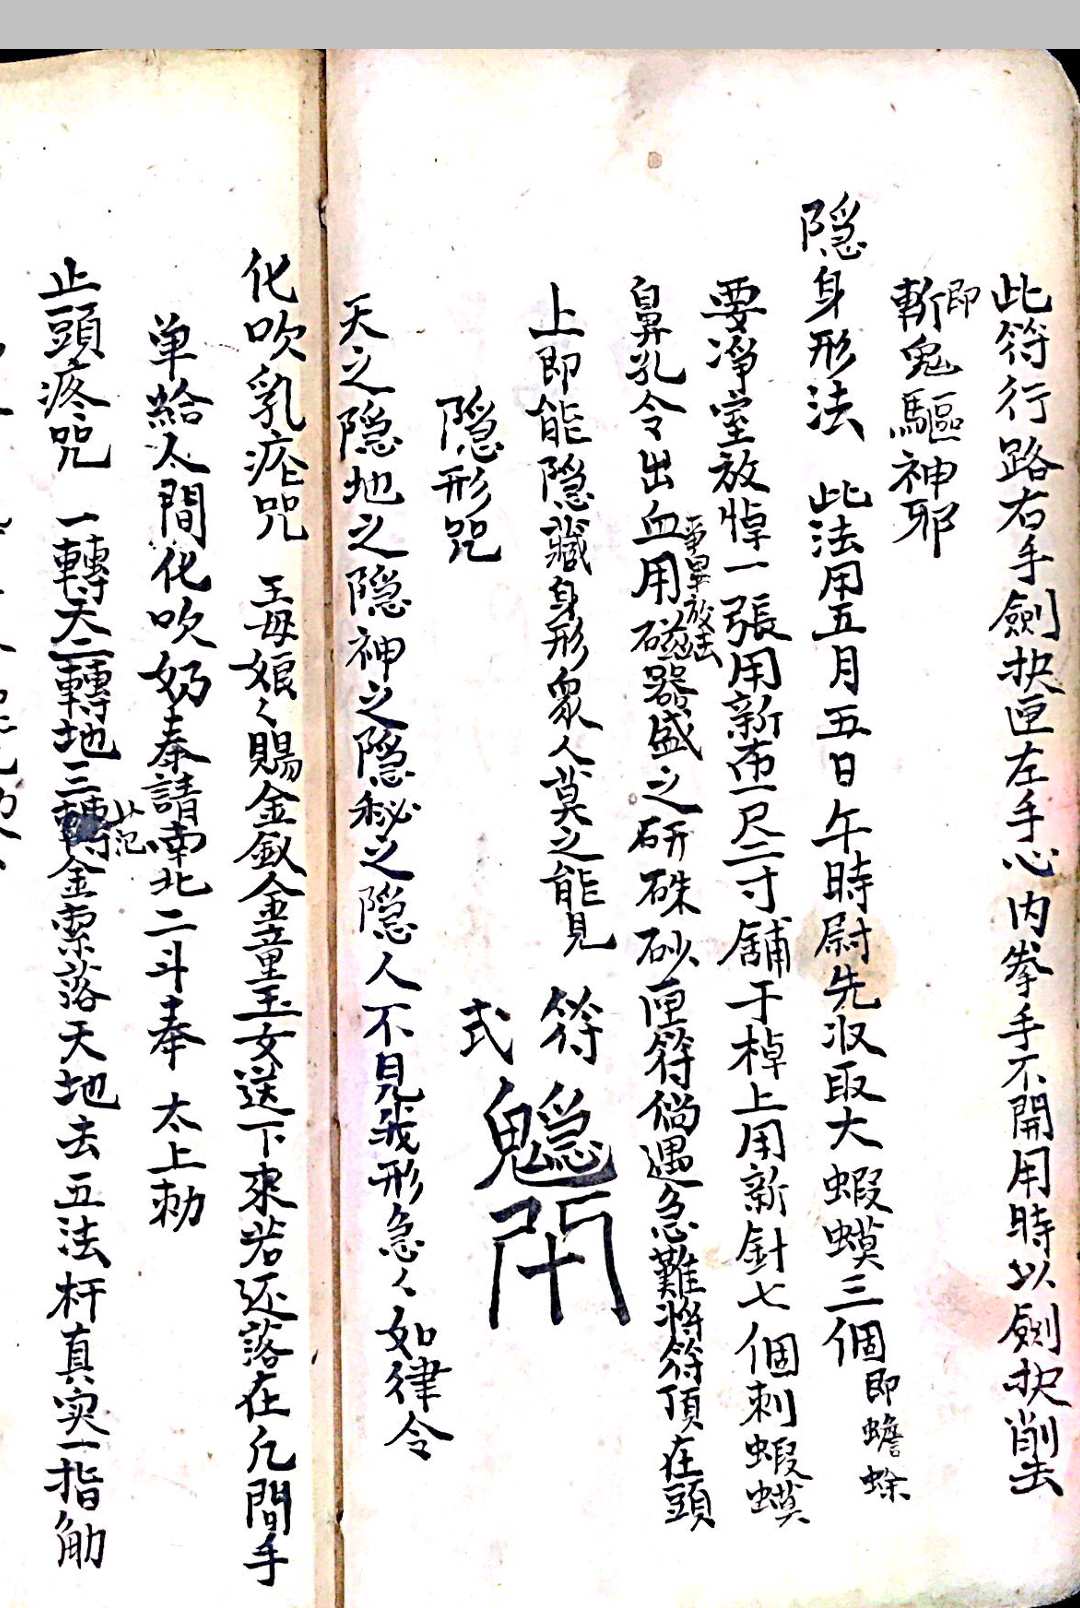 此符行路右手劍抉匣左手心内拳手不開用時以劍抉削去
即
斬鬼驅神邪
隐身形法 此法用五月五日午時尉先收取大蝦蟆三個即蟾蜍
要淨室放悼一張用新布一尺二寸舖于棹上用新針七個刺蝦蟆
鼻孔令出血用磁器盛之研硃砂匣符倘遇急難將符頂在頭
事畢放去
上即能隐藏身形衆人莫之能見 符
式
隐形咒
天之隐地之隐神之隐秘之隐人不見我形急々如律令
化吹乳疮咒 王母娘々賜金釵金童玉女送下來若还落在凡間手
单給人間化吹奶奉請南北二斗奉 太上勅
止頭疼咒 一轉天二轉地三轉金索落天地去五法杆真实一指觔